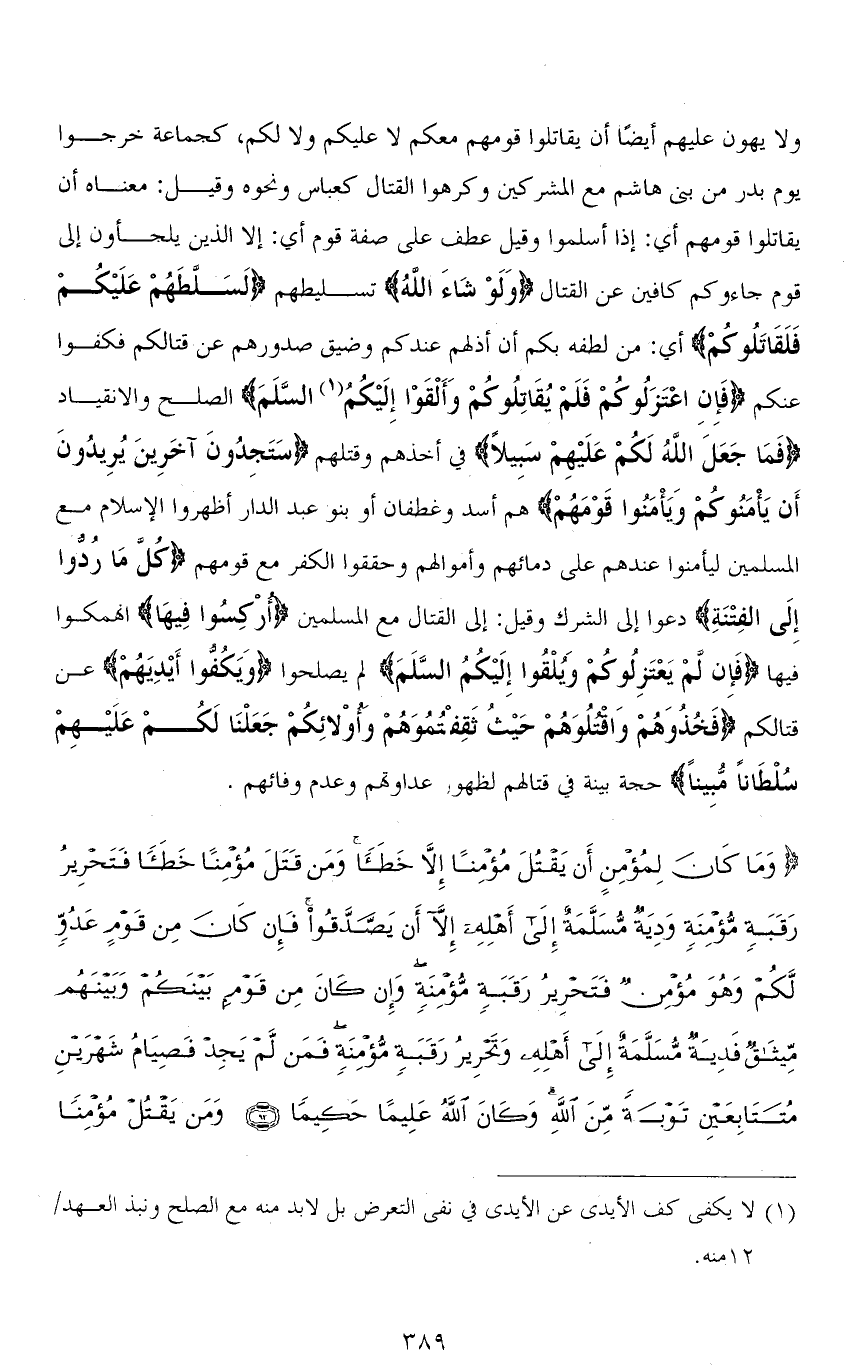 ولا يهون عليهم أيضًا أن يقاتلوا قومهم معكم لا عليكم ولا لكم، كجماعة خرجـــوا
يوم بدر من بنى هاشم مع المشركين وكرهوا القتال كعباس ونحوه وقيـــل: معنـــاه أن
يقاتلوا قومهم أي: إذا أسلموا وقيل عطف على صفة قوم أي: إلا الذين يلجـــأون إلى
قوم جاءوكم كافين عن القتال ﴿وَلَوْ شَاءَ اللَّهُ﴾ تســـليطهم ﴿لَسَـــلَّطَهُمْ عَلَيْكُـــمْ
فَلَقَاتَلُوكُمْ﴾ أي: من لطفه بكم أن أذلهم عندكم وضيق صدورهم عن قتالكم فكفـــوا
عنكم ﴿فَإِن اعْتَزَلُوكُمْ فَلَمْ يُقَاتِلُوكُمْ وَأَلْقَوْا إِلَيْكُمُ(١) السَّلَمَ﴾ الصلـــح والانقيـــاد
﴿فَمَا جَعَلَ اللَّهُ لَكُمْ عَلَيْهِمْ سَبِيلاً﴾ في أخذهم وقتلهم ﴿سَتَجِدُونَ آخَرِينَ يُرِيدُونَ
أَن يَأْمَنُوكُمْ وَيَأْمَنُوا قَوْمَهُمْ﴾ هم أسد وغطفان أو بنو عبد الدار أظهروا الإسلام مـــع
المسلمين ليأمنوا عندهم على دمائهم وأموالهم وحققوا الكفر مع قومهم ﴿كُلَّ مَا رُدُّوا
إِلَى الفِتْنَةِ﴾ دعوا إلى الشرك وقيل: إلى القتال مع المسلمين ﴿أُرْكِسُوا فِيهَا﴾ انهمكـــوا
فيها ﴿فَإِن لَّمْ يَعْتَزِلُوكُمْ وَيُلْقُوا إِلَيْكُمُ السَّلَمَ﴾ لم يصلحوا ﴿وَيَكُفُّوا أَيْدِيَهُمْ﴾ عـــن
قتالكم ﴿فَخُذُوَهُمْ وَاقْتُلُوَهُمْ حَيْثُ ثَقِفْتُمُوَهُمْ وَأُوْلائِكُمْ جَعَلْنَا لَكُـــمْ عَلَيْـــهِمْ
سُلْطَاناً مُّبِيناً﴾ حجة بينة في قتالهم لظهور عداوتهم وعدم وفائهم .
﴿ وَمَا كَانَ لِمُؤْمِنٍ أَن يَقْتُلَ مُؤْمِنًا إِلَّا خَطَـًٔا ۚ وَمَن قَتَلَ مُؤْمِنًا خَطَـًٔا فَتَحْرِيرُ
رَقَبَةٍ مُّؤْمِنَةٍ وَدِيَةٌ مُّسَلَّمَةٌ إِلَىٰٓ أَهْلِهِۦٓ إِلَّآ أَن يَصَّدَّقُوا۟ ۚ فَإِن كَانَ مِن قَوْمٍ عَدُوٍّ
لَّكُمْ وَهُوَ مُؤْمِنٌ فَتَحْرِيرُ رَقَبَةٍ مُّؤْمِنَةٍ ۖ وَإِن كَانَ مِن قَوْمٍۭ بَيْنَكُمْ وَبَيْنَهُم
مِّيثَـٰقٌ فَدِيَةٌ مُّسَلَّمَةٌ إِلَىٰٓ أَهْلِهِۦ وَتَحْرِيرُ رَقَبَةٍ مُّؤْمِنَةٍ ۖ فَمَن لَّمْ يَجِدْ فَصِيَامُ شَهْرَيْنِ
مُتَتَابِعَيْنِ تَوْبَةً مِّنَ ٱللَّهِ ۗ وَكَانَ ٱللَّهُ عَلِيمًا حَكِيمًا ﴿٩٢﴾ وَمَن يَقْتُلْ مُؤْمِنًا
(١) لا يكفى كف الأيدى عن الأيدى في نفى التعرض بل لابد منه مع الصلح ونبذ العـــهد/
١٢منه.
٣٨٩